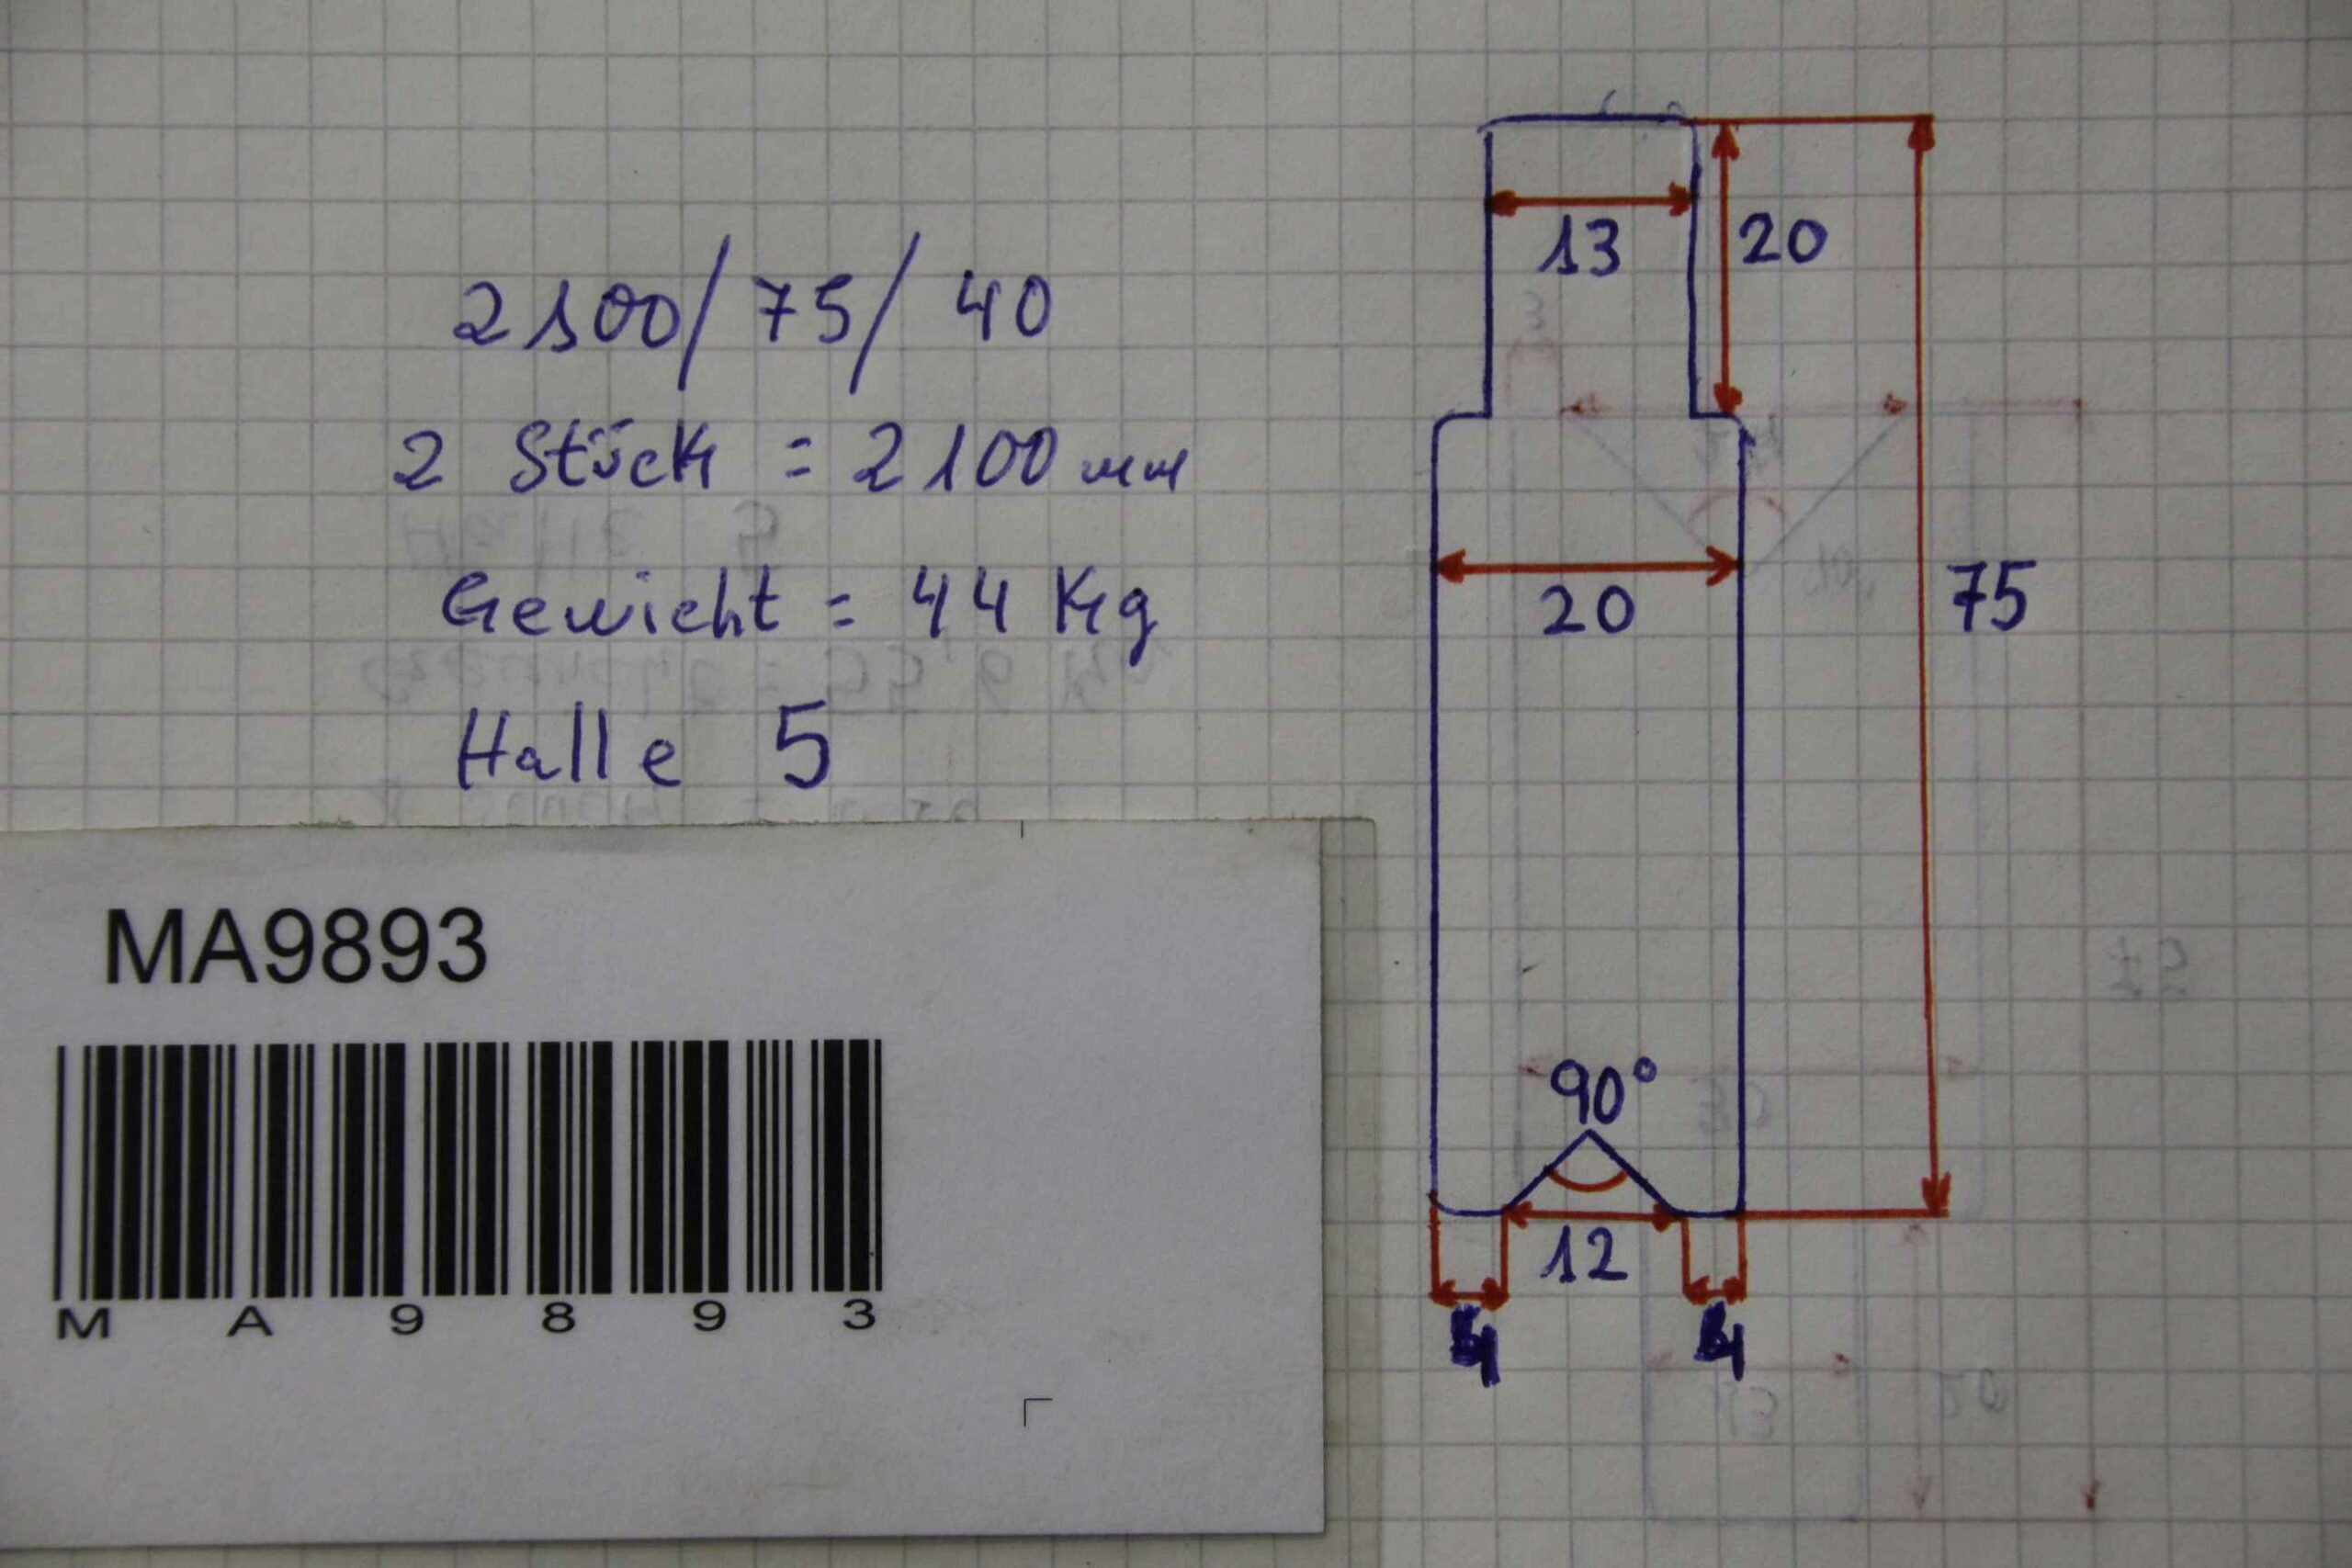 2100/75/40
2 Stück = 2100 mm
Gewicht = 44 Kg
Halle 5
13
20
20
75
90°
12
4
4
MA9893
M A 9 8 9 3